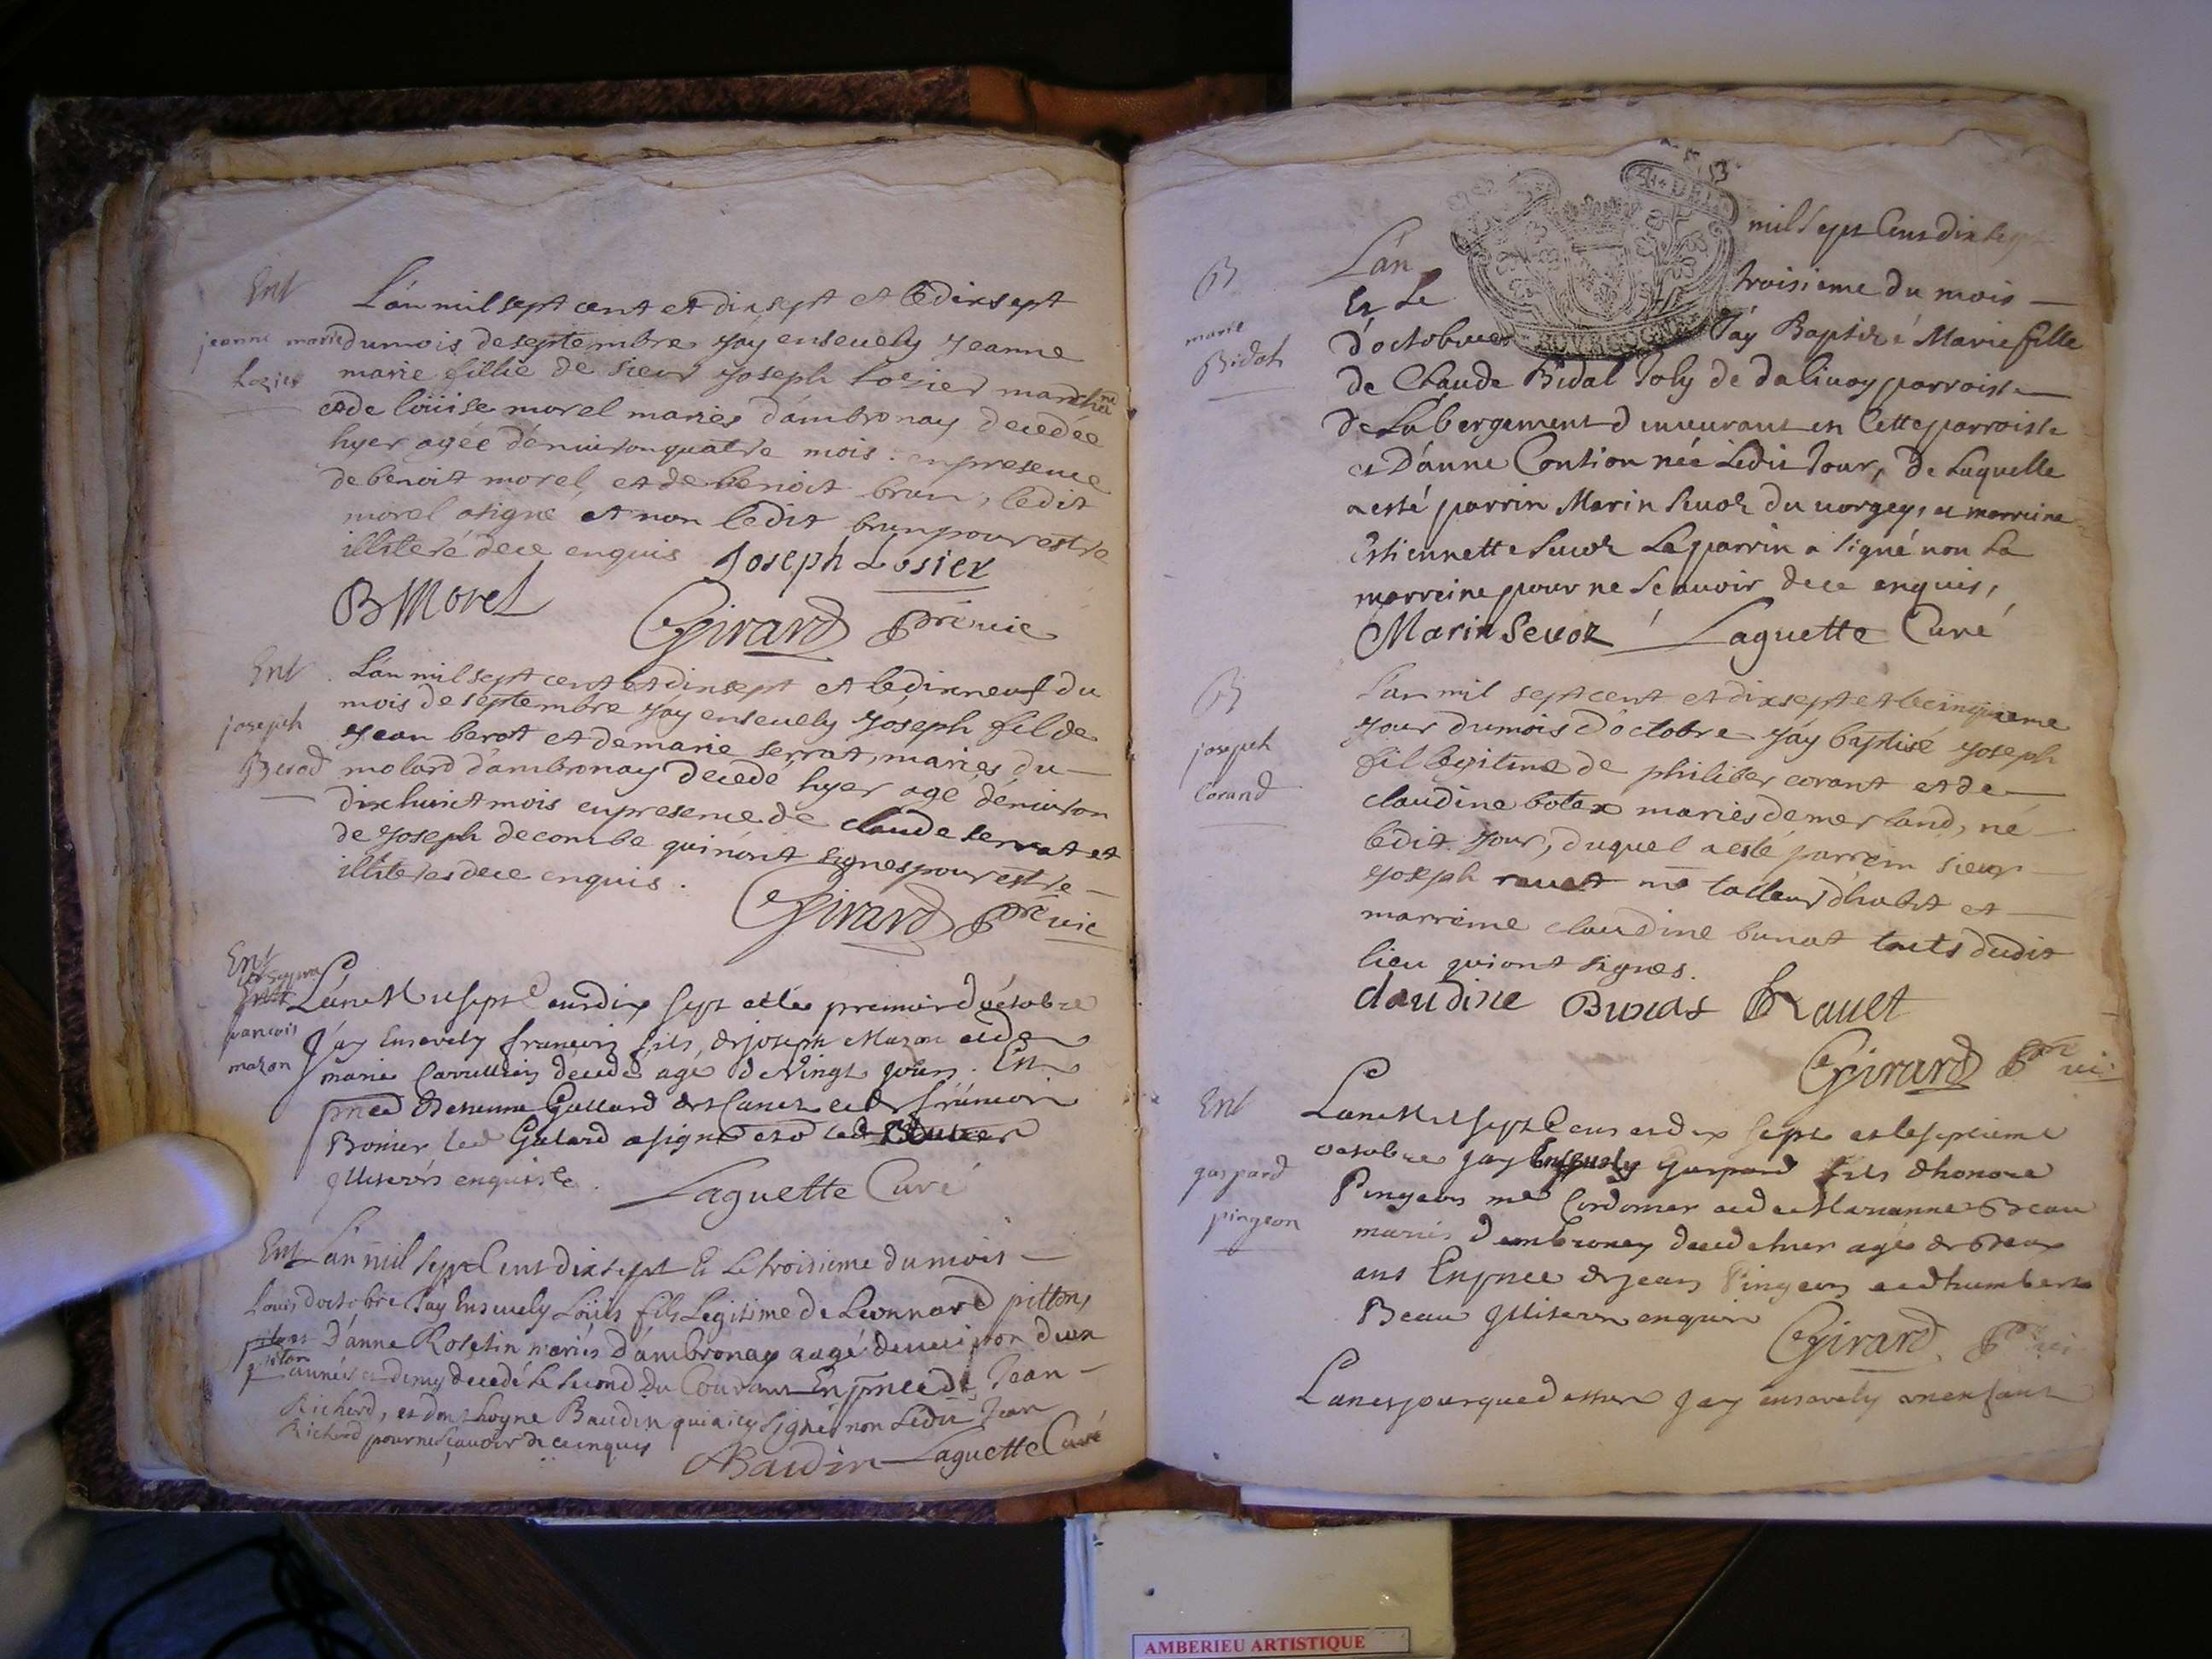 Ent
jeanne marie
Lozier
L'an mil sept cent et dix sept et le dixsept
du mois de septembre j'ay ensevely Jeanne
marie fillie de sieur joseph Losier marchand
et de loüise morel mariés d'ambronay decedée
hyer agée d'environ quatre mois. en presence
de benoit morel, et de benoit brun, ledit
morel a signé et non ledit brun pour estre
illiteré de ce enquis Joseph Losier
B Morel Girard Pre vic
Ent
joseph
Berod
L'an mil sept cent et dixsept et le dixneuf du
mois de septembre jay ensevely joseph fil de
jean berot et de marie serrat, mariés du
molard d'ambronay decedé hyer agé d'environ
dix huict mois en presence de claude serrat et
de joseph decombe qui n'ont signes pour estre
illiteres de ce enquis.
Girard Pre vic
Ent
francois
mazon
L'an Mil sept Cens dix sept et le premier d'octobre
J'ay Ensevely francois fils de joseph Mazon et de
marie decedé agé de Vingt jours. En
pnce d'Estienne Gallard et de francois
Bonier led Galard a signé et non led
Illiterés enquis
Laguette Curé
Ent
Louis
piton
L'an mil sept Cens dix sept Et Le troisieme du mois
d'octobre J'ay Ensevely Loüis fils Legitime de Leonnard pitton,
D'anne Roselin mariés D'ambronay aagé d'environ d'un
année et demy decedé Le second du Courant En pnce de Jean
Richerd, et d'Anthoyne Baudin qui a icy signé non Ledit Jean
Richerd pour ne sçavoir de ce enquis
ABaudin Laguette Curé
B
marie
Bidat
L'an mil sept Cens dix sept
Et Le troisieme du mois
d'octobre J'ay Baptizé Marie fille
de Claude Bidal Joly de dalivoy parroisse
de Labergement demeurant en Cette parroisse
et D'anne Contion née Ledit Jour, de Laquelle
a esté parrin Marin Sevoz du vorgey, et marreine
Estiennette Sevoz Le parrin a signé non La
marreine pour ne scavoir de ce enquis,
Marin Sevoz Laguette Curé
B
joseph
Corand
L'an mil sept cent et dixsept et le cinquieme
jour du mois d'octobre j'ay baptisé joseph
fil legitime de philiber corant et de
claudine botex mariés de merland, né
ledit jour, duquel a esté parrein sieur
joseph ravet me talleur d'habit et
marreine claudine bunat touts dudit
lieu qui ont signes.
claudine Bunas Rauet
Girard Pre vic
Ent
gaspard
pingeon
L'an Mil sept Cens et dix sept et le septieme
octobre jay Ensevely Gaspard fils d'honoré
Pingeon me Cordonier et de Marianne Beau
mariés d'ambronay decedé hier agé de deux
ans En pnce de jean Pingeon et d'humbert
Beau Illiterés enquis
Girard Pre vic
L'an et jour que dessus Jay ensevely un enfant
AMBERIEU ARTISTIQUE